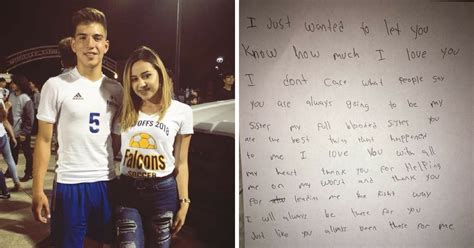 5
OFFS 2018
Falcons
SOCCER
I Just wanted to let you
Know how much I love you
I dont Care what people say
you are always going to be my
Sister my full blooded sister you
are the best thing that happened
to me I love you with all
my heart thank you for Helping
me on my worst and thank you
For leading me the Right way
I will always be there for you
Just like you always been there for me